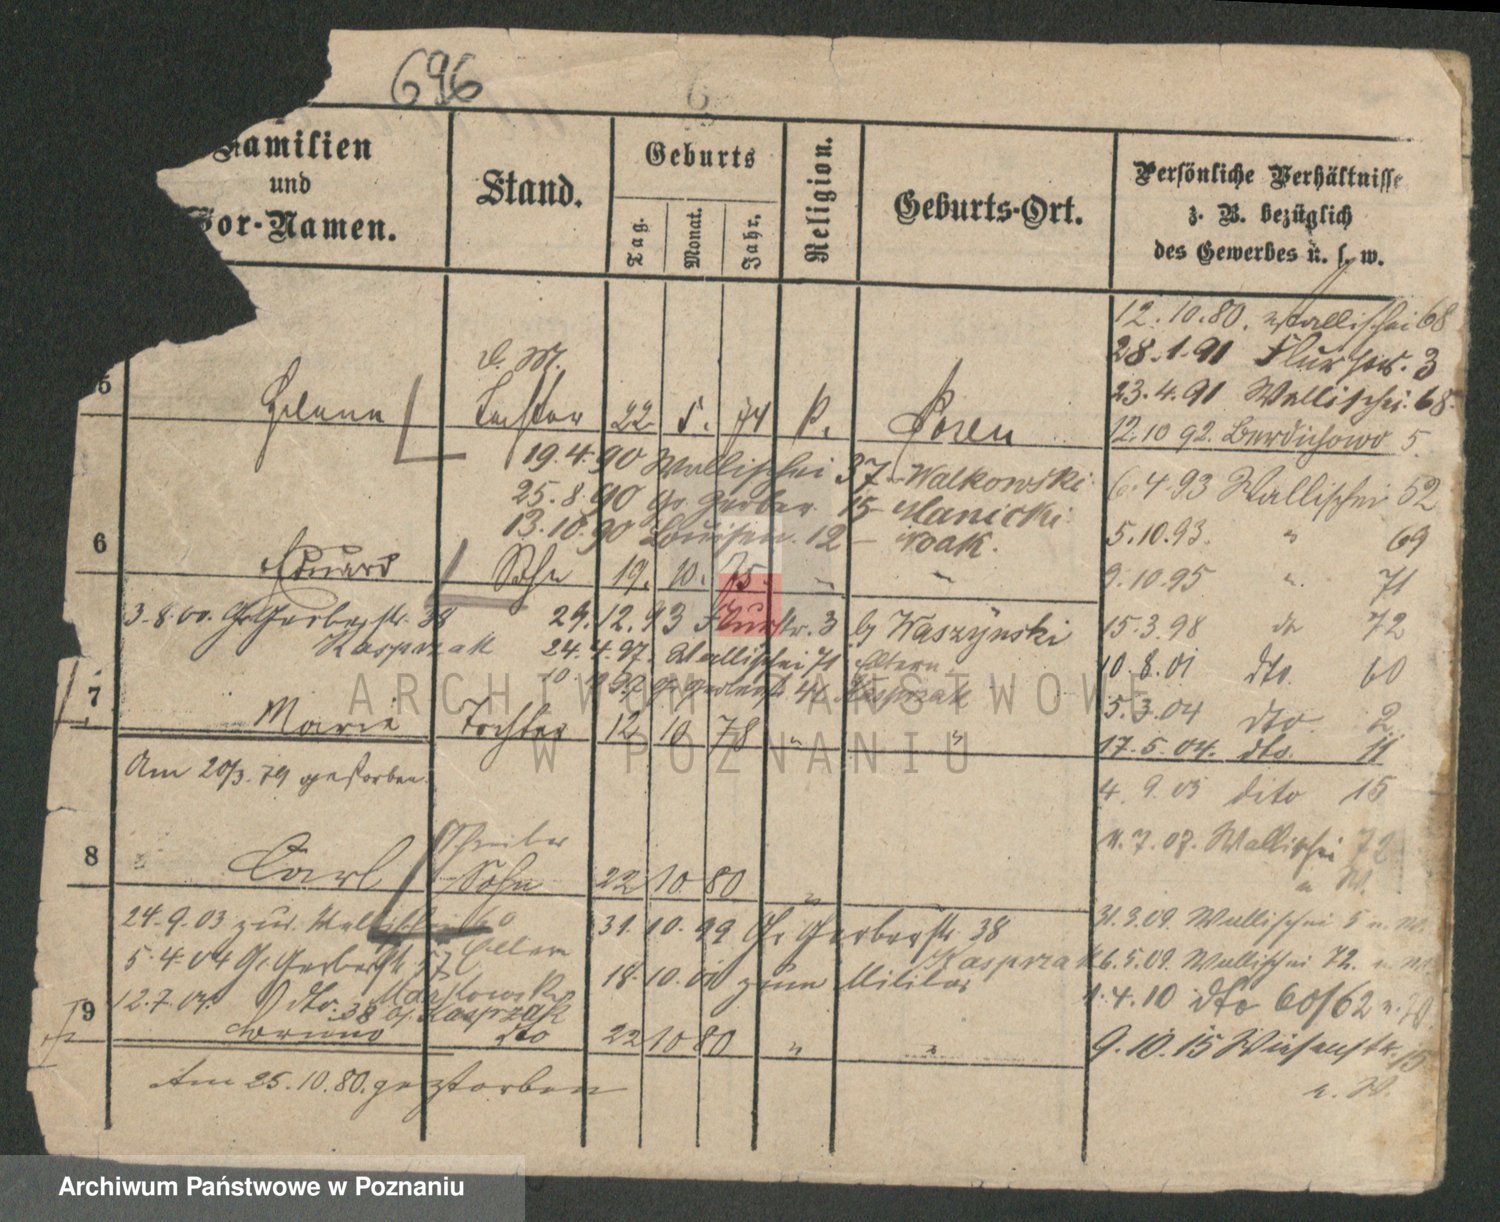 696
Familien
und
Vor-Namen.
Stand.
Geburts
Tag. Monat. Jahr.
Religion.
Geburts-Ort.
Persönliche Verhältnisse
z. B. bezüglich
des Gewerbes u. s. w.
12.10.80. Wallischei 68
28.1.91 Flurstr. 3
23.4.91 Wallischei 68.
12.10 92. Berdichowo 5.
6.4.93 Wallischei 52
5.10.93. " 69
9.10.95 " 71
15.3.98 do 72
10.8.01 dto. 60
5.3.04 dto 2.
17.5.04. dto. 11
4.9.05 dito 15
4.7.07. Wallischei 72
u. W.
31.3.09. Wallischei 5 u. W.
6.5.09. Wallischei 72. u. W.
1.4.10 dto 60/62 u.
9.10.15 Wiesenstr. 15
u. W.
5
Helene Tochter 22 5. 74 k. Posen
19.4.90 Wallischei 37 - Walkowski
25.8.90 Gr Gerber 15 - Manicki
13.10.90 Louisen 12 - Noak.
6
Eduard Sohn 19. 10. 75. " "
3.8.00. Gr Gerberstr. 38
Kasprzak
29.12.93 Flurstr. 3 bj Waszynski
24.4.97. Wallischei 71 Eltern
Kasprzak
7
Marie Tochter 12 10 78 " "
Am 20/3.79 gestorben.
8
Carl
Sohn 22 10 80 "
24.9.03 zur. Wallischei 60
Eltern
5.4.04 Gr. Gerberstr. 57
12.7.04. dto. 38 bj. Kasprzak
31.10.99 Gr Gerberstr. 38
Kasprzak
18.10.01 zum Militär
9
Bruno dto 22 10 80 " "
Am 25.10.80. gestorben
ARCHIWUM PAŃSTWOWE
W POZNANIU
Archiwum Państwowe w Poznaniu